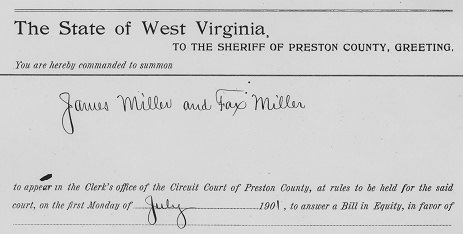 The State of West Virginia,
TO THE SHERIFF OF PRESTON COUNTY, GREETING.
You are hereby commanded to summon
James Miller and Fax Miller
to appear in the Clerk's office of the Circuit Court of Preston County, at rules to be held for the said
court, on the first Monday of July 1901, to answer a Bill in Equity, in favor of